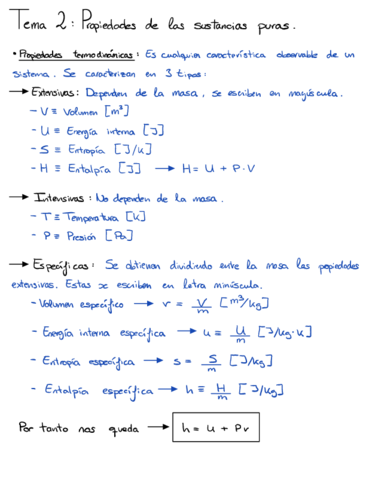 Tema 2: Propiedades de las sustancias puras.
• Propiedades termodinámicas: Es cualquier característica observable de un
sistema. Se caracterizan en 3 tipos:
→ Extensivas: Dependen de la masa, se escriben en mayúscula.
- V ≡ Volumen [m³]
- U ≡ Energía interna [J]
- S ≡ Entropía [J/K]
- H ≡ Entalpía [J] → H = U + P·V
→ Intensivas: No dependen de la masa.
- T ≡ Temperatura [K]
- P ≡ Presión [Pa]
→ Específicas: Se obtienen dividiendo entre la masa las propiedades
extensivas. Estas se escriben en letra minúscula.
- Volumen específico → v = V/m [m³/kg]
- Energía interna específica → u = U/m [J/kg·K]
- Entropía específica → s = S/m [J/kg]
- Entalpía específica → h ≡ H/m [J/kg]
Por tanto nos queda → h = u + Pv